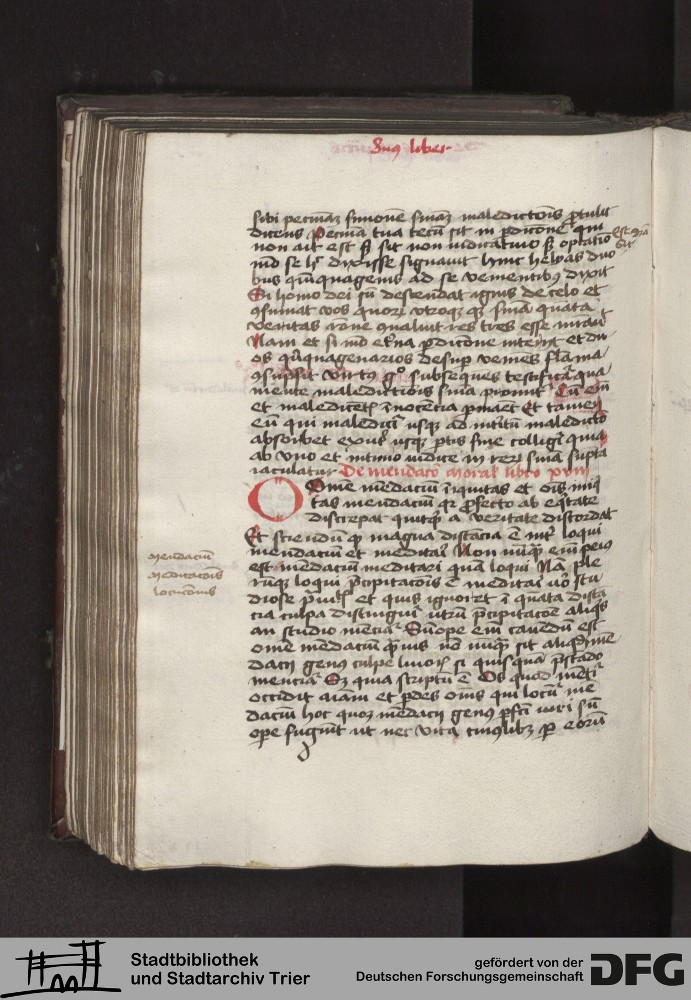 liber
sibi pecuniam simonem sententiam maledictionis protulit
dicens Pecunia tua tecum sit in perdicione qui
non ait est sed sit non indicativo sed optativo
modo se hec dixisse signavit hinc helyas duo
bus quinquagenis ad se venientibus dixit
Si homo dei sum descendat ignis de celo et
consumat vos quorum utrorumque sententia quanta
veritas ratione convaluit res tres esse
Nam et simon eterna perdicione interiit et du
os quinquagenarios desuper veniens flamma
consumpsit virtus ergo subsequens testificatur qua
mente maledictionis sententia promitur Cum enim
et maledicentis innocencia permanet Et tamen
eum qui maledicitur usque ad interitum maledictio
absorbet ex utriusque partis fine colligitur quia
ab uno et intimo iudice in reum sententia sumpta
iaculatur De mendacio moralium libro xviii
Omne mendacium iniquitas et omnis iniqui
tas mendacium quia profecto ab equitate
discrepat quicquid a veritate discordat
Et sciendum quod magna distancia est inter loqui
mendacium et meditari Non nunquam enim peius
est mendacium meditari quam loqui Nam ple
rumque loqui precipitacionis est meditari vero stu
diose pravitatis et quis ignoret in quanta distan
cia culpa distinguitur utrum precipitacione aliquis
an studio menciatur Summopere enim cavendum est
omne mendacium quamvis non nunquam sit aliquod men
dacii genus culpe levioris si quisquam prestando
menciatur Sed quia scriptum est Os quod mentitur
occidit animam et perdes omnes qui locuntur men
dacium hoc quoque mendacii genus perfecti viri sum
opere fugiunt ut nec vita cuiuslibet per eorum
mendacium
meditacionis
locucionis
Stadtbibliothek
und Stadtarchiv Trier
gefördert von der
Deutschen Forschungsgemeinschaft
DFG